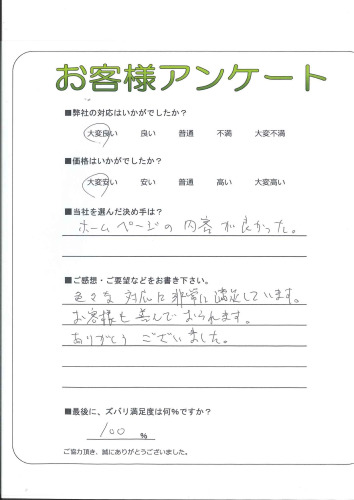 お客様アンケート
■弊社の対応はいかがでしたか？
大変良い 良い 普通 不満 大変不満
■価格はいかがでしたか？
大変安い 安い 普通 高い 大変高い
■当社を選んだ決め手は？
ホームページの内容が良かった。
■ご感想・ご要望などをお書き下さい。
色々な対応に非常に満足しています。
お客様も喜んでおられます。
ありがとうございました。
■最後に、ズバリ満足度は何％ですか？
100 %
ご協力頂き、誠にありがとうございました。